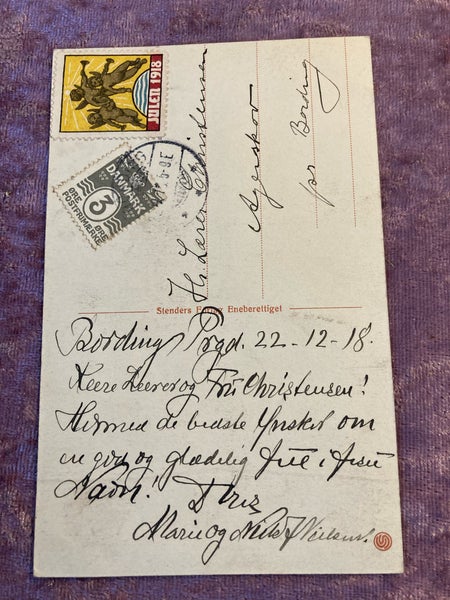 JULEN 1918
DANMARK
3
ØRE
ØRE
POSTFRIMÆRKE
Hr. Lærer Christensen
Agerskov
pr Bording
Stenders Eneberettiget
Bording Prgd. 22-12-18.
Kære Lærer og Fru Christensen!
Hermed de bedste Ønsker om
en god og glædelig Jul i Jesu
Navn!
Marie og Niels Nielsen.